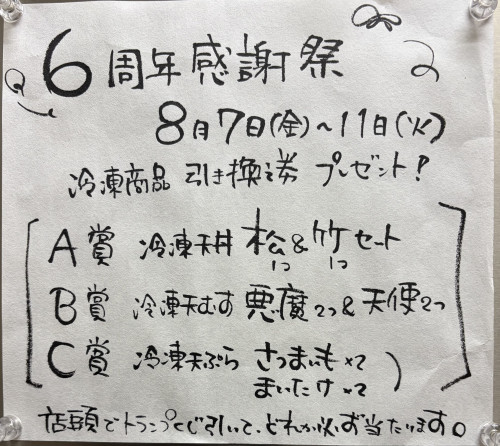 6周年感謝祭
8月7日(金)~11日(火)
冷凍商品 引き換え券 プレゼント!
A賞 冷凍天丼 松&竹セット
1つ 1つ
B賞 冷凍天むす 悪魔2つ&天使2つ
C賞 冷凍天ぷら さつまいも×2
まいたけ×2
店頭でトランプくじ引いて、どれか必ず当たります。